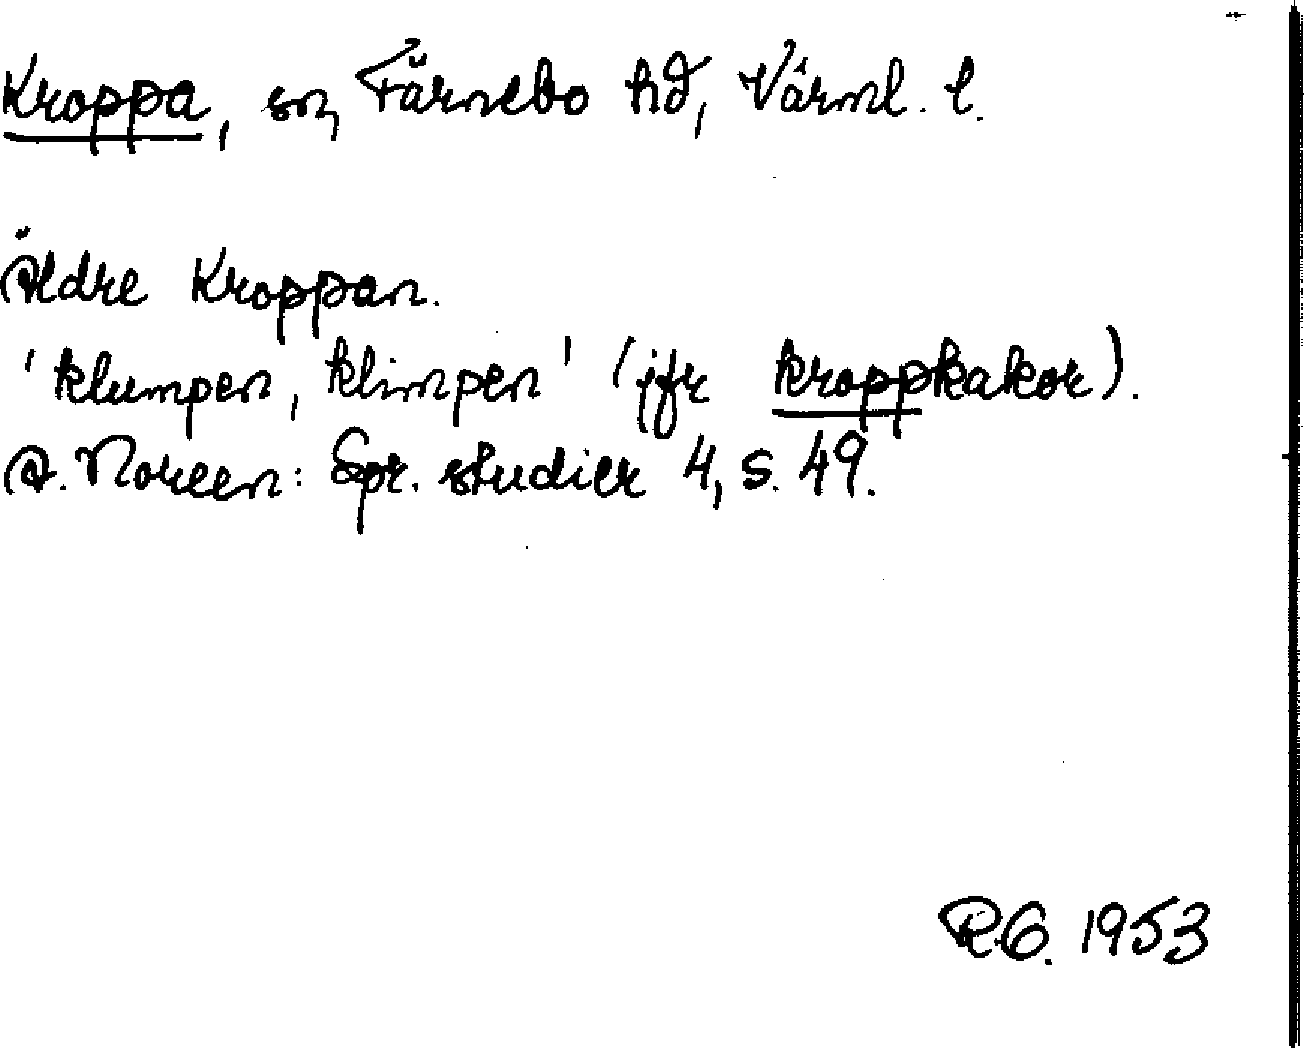 Kroppa, sn, Färnebo hd, Värml. l.
Äldre Kroppan.
'klumpen, klimpen' (jfr kroppkakor).
A. Noreen: Spr. studier 4, s. 49.
R.G. 1953